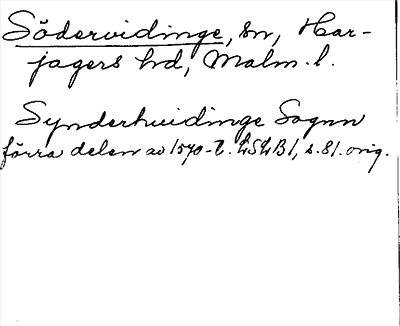 Södervidinge, sn, Har-
jagers hd, Malm. l.
Synderhuidinge Sognn
förra delen av 1570-t. LSLB 1, s. 81. orig.